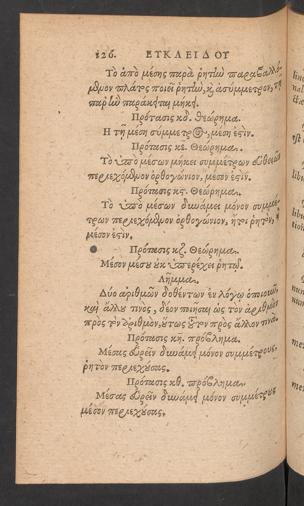 126. ΕΥΚΛΕΙΔΟΥ
Τὸ ἀπὸ μέσης παρὰ ῥητὴν παραβαλλό-
μενον πλάτος ποιεῖ ῥητὴν, κ̀ ἀσύμμετρον, τῇ
παρ' ἣν παράκειται μήκει.
Πρότασις κδ. Θεώρημα.
Ἡ τῇ μέσῃ σύμμετρος, μέση ἐστίν.
Πρότασις κε. Θεώρημα.
Τὸ ὑπὸ μέσων μήκει συμμέτρων εὐθειῶν
περιεχόμενον ὀρθογώνιον, μέσον ἐστίν.
Πρότασις κϛ. Θεώρημα.
Τὸ ὑπὸ μέσων δυνάμει μόνον συμμέ-
τρων περιεχόμενον ὀρθογώνιον, ἤτοι ῥητὸν, ἢ
μέσον ἐστίν.
Πρότασις κζ. Θεώρημα.
Μέσον μέσου οὐκ ὑπερέχει ῥητῷ.
Λῆμμα.
Δύο ἀριθμῶν δοθέντων ἐν λόγῳ ὁποιῳοῦν,
καὶ ἄλλου τινὸς, δέον ποιῆσαι ὡς τὸν ἀριθμὸν
πρὸς τὸν ἀριθμὸν, οὕτως τὸν πρὸς ἄλλον τινά.
Πρότασις κη. πρόβλημα.
Μέσας εὑρεῖν δυνάμει μόνον συμμέτρους,
ῥητὸν περιεχούσας.
Πρότασις κθ. πρόβλημα.
Μέσας εὑρεῖν δυνάμει μόνον συμμέτρους
μέσον περιεχούσας.